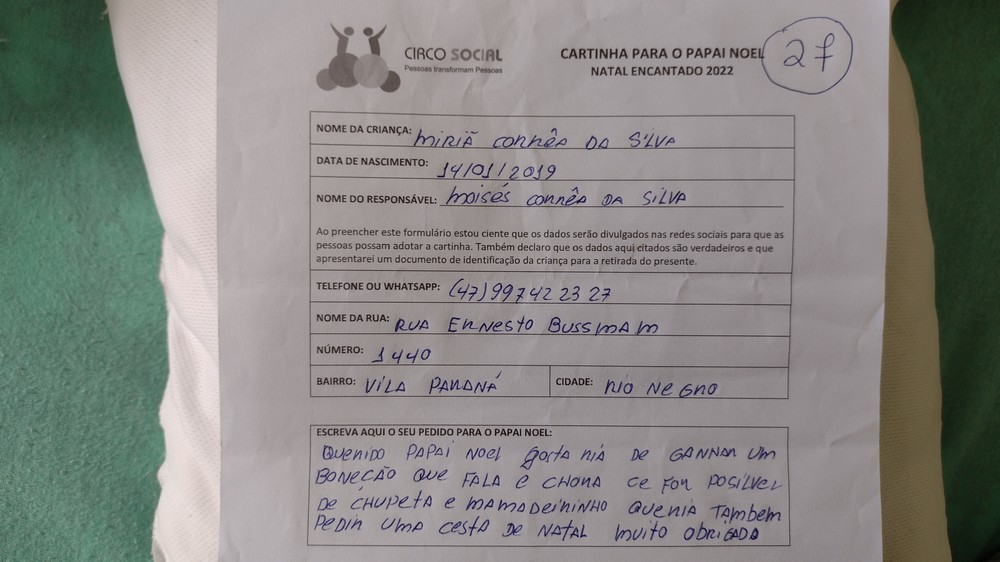 CIRCO SOCIAL
Pessoas transformam Pessoas
CARTINHA PARA O PAPAI NOEL
NATAL ENCANTADO 2022
27
NOME DA CRIANÇA: MIRIÃ CORRÊA DA SILVA
DATA DE NASCIMENTO: 14/01/2019
NOME DO RESPONSÁVEL: MOISÉS CORRÊA DA SILVA
Ao preencher este formulário estou ciente que os dados serão divulgados nas redes sociais para que as
pessoas possam adotar a cartinha. Também declaro que os dados aqui citados são verdadeiros e que
apresentarei um documento de identificação da criança para a retirada do presente.
TELEFONE OU WHATSAPP: (47) 99742 23 27
NOME DA RUA: RUA ERNESTO BUSSMAM
NÚMERO: 1440
BAIRRO: VILA PARANÁ CIDADE: RIO NEGRO
ESCREVA AQUI O SEU PEDIDO PARA O PAPAI NOEL:
QUERIDO PAPAI NOEL gosta RIA DE GANHAR UM
BONECÃO QUE FALA E CHORA CE FOR POSILVEL
DE CHUPETA E MAMADEIRINHO QUERIA TAMBEM
PEDIR UMA CESTA DE NATAL MUITO OBRIGADO